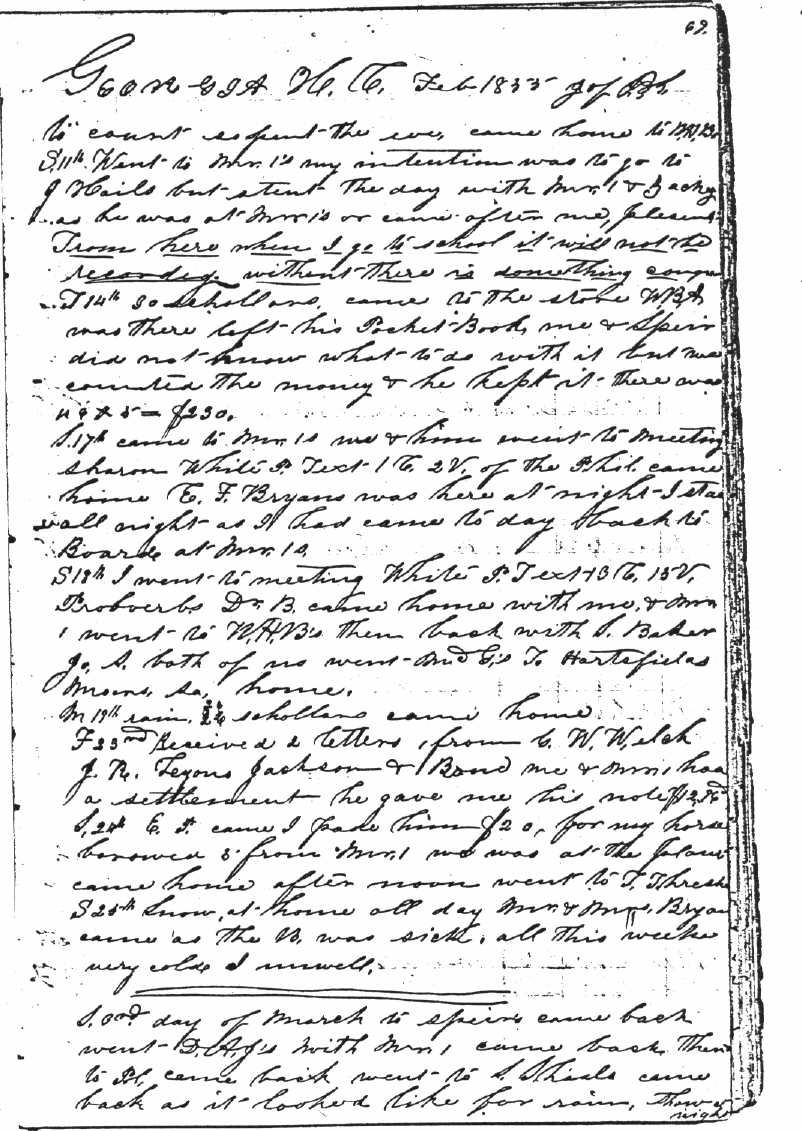 69.
GEORGIA H. C. Feb 1855
to count spent the eve, came home to
S. 11th. Went to Mr. 1's my intention was to go to
J Hails but spent the day with Mr. 1 &
as he was at Mr. 1's or came after me, pleasent
From here when I go to school it will not be
recorded. without there is something
30 schollars. came to the store W.B.A.
was there left his Pocket Book, me & Speir
did not know what to do with it but we
counted the money & he kept it there was
= $230.
S. 17th came to Mr. 1s me & him went to meeting
Sharon White P. Text 1 C. 2 V. of the Phil. came
home E. F. Bryans was here at night I
all night as I had came to day back to
Board at Mr. 1s.
S 18th I went to meeting White P. Text C. 15 V.
Probverbs Dr. B. came home with me, & Mr
1 went to W.H.B's then back with S. Baker
Jo, S. both of us went To Hartsfields
home.
M 19th rain. schollars came home
F 23rd Received 2 letters, from C. W. Welch
J. R. Legons Jackson & Bond me & Mr. 1 had
a settlement he gave me his note
S, 24th E. P. came I pade him $20, for my horse
borowed 5 from Mr. 1 we was at the
came home after noon went to T. Thresh
S 25th Snow, at home all day Mr. & Mrs. Bryan
came as the B. was sick. all this weeke
very cold I unwell.
S. 3rd. day of March to Speirs came back
went D.A.J's with Mr. 1 came back, then
to Pl. came back went to S. Shiels came
back as it looked like for rain,
night